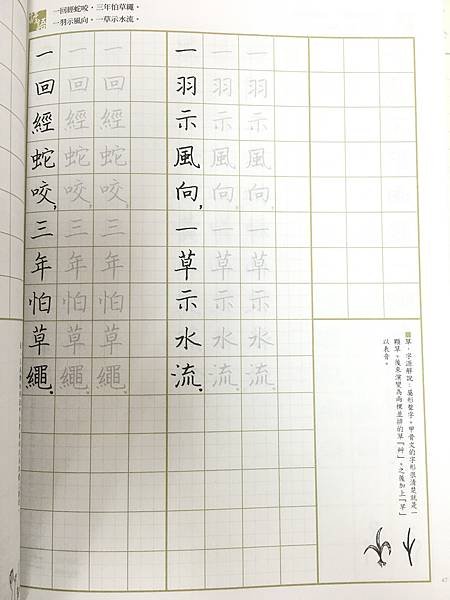 一回經蛇咬，三年怕草繩。
一羽示風向，一草示水流。
一回經蛇咬，三年怕草繩。
一回經蛇咬，三年怕草繩。
一回經蛇咬，三年怕草繩。
一羽示風向，一草示水流。
一羽示風向，一草示水流。
一羽示風向，一草示水流。
草，字源解說：屬形聲字。甲骨文的字形很清楚就是一
顆草。後來演變為兩棵並排的草「艸」。之後加上「早」
以表音。
47